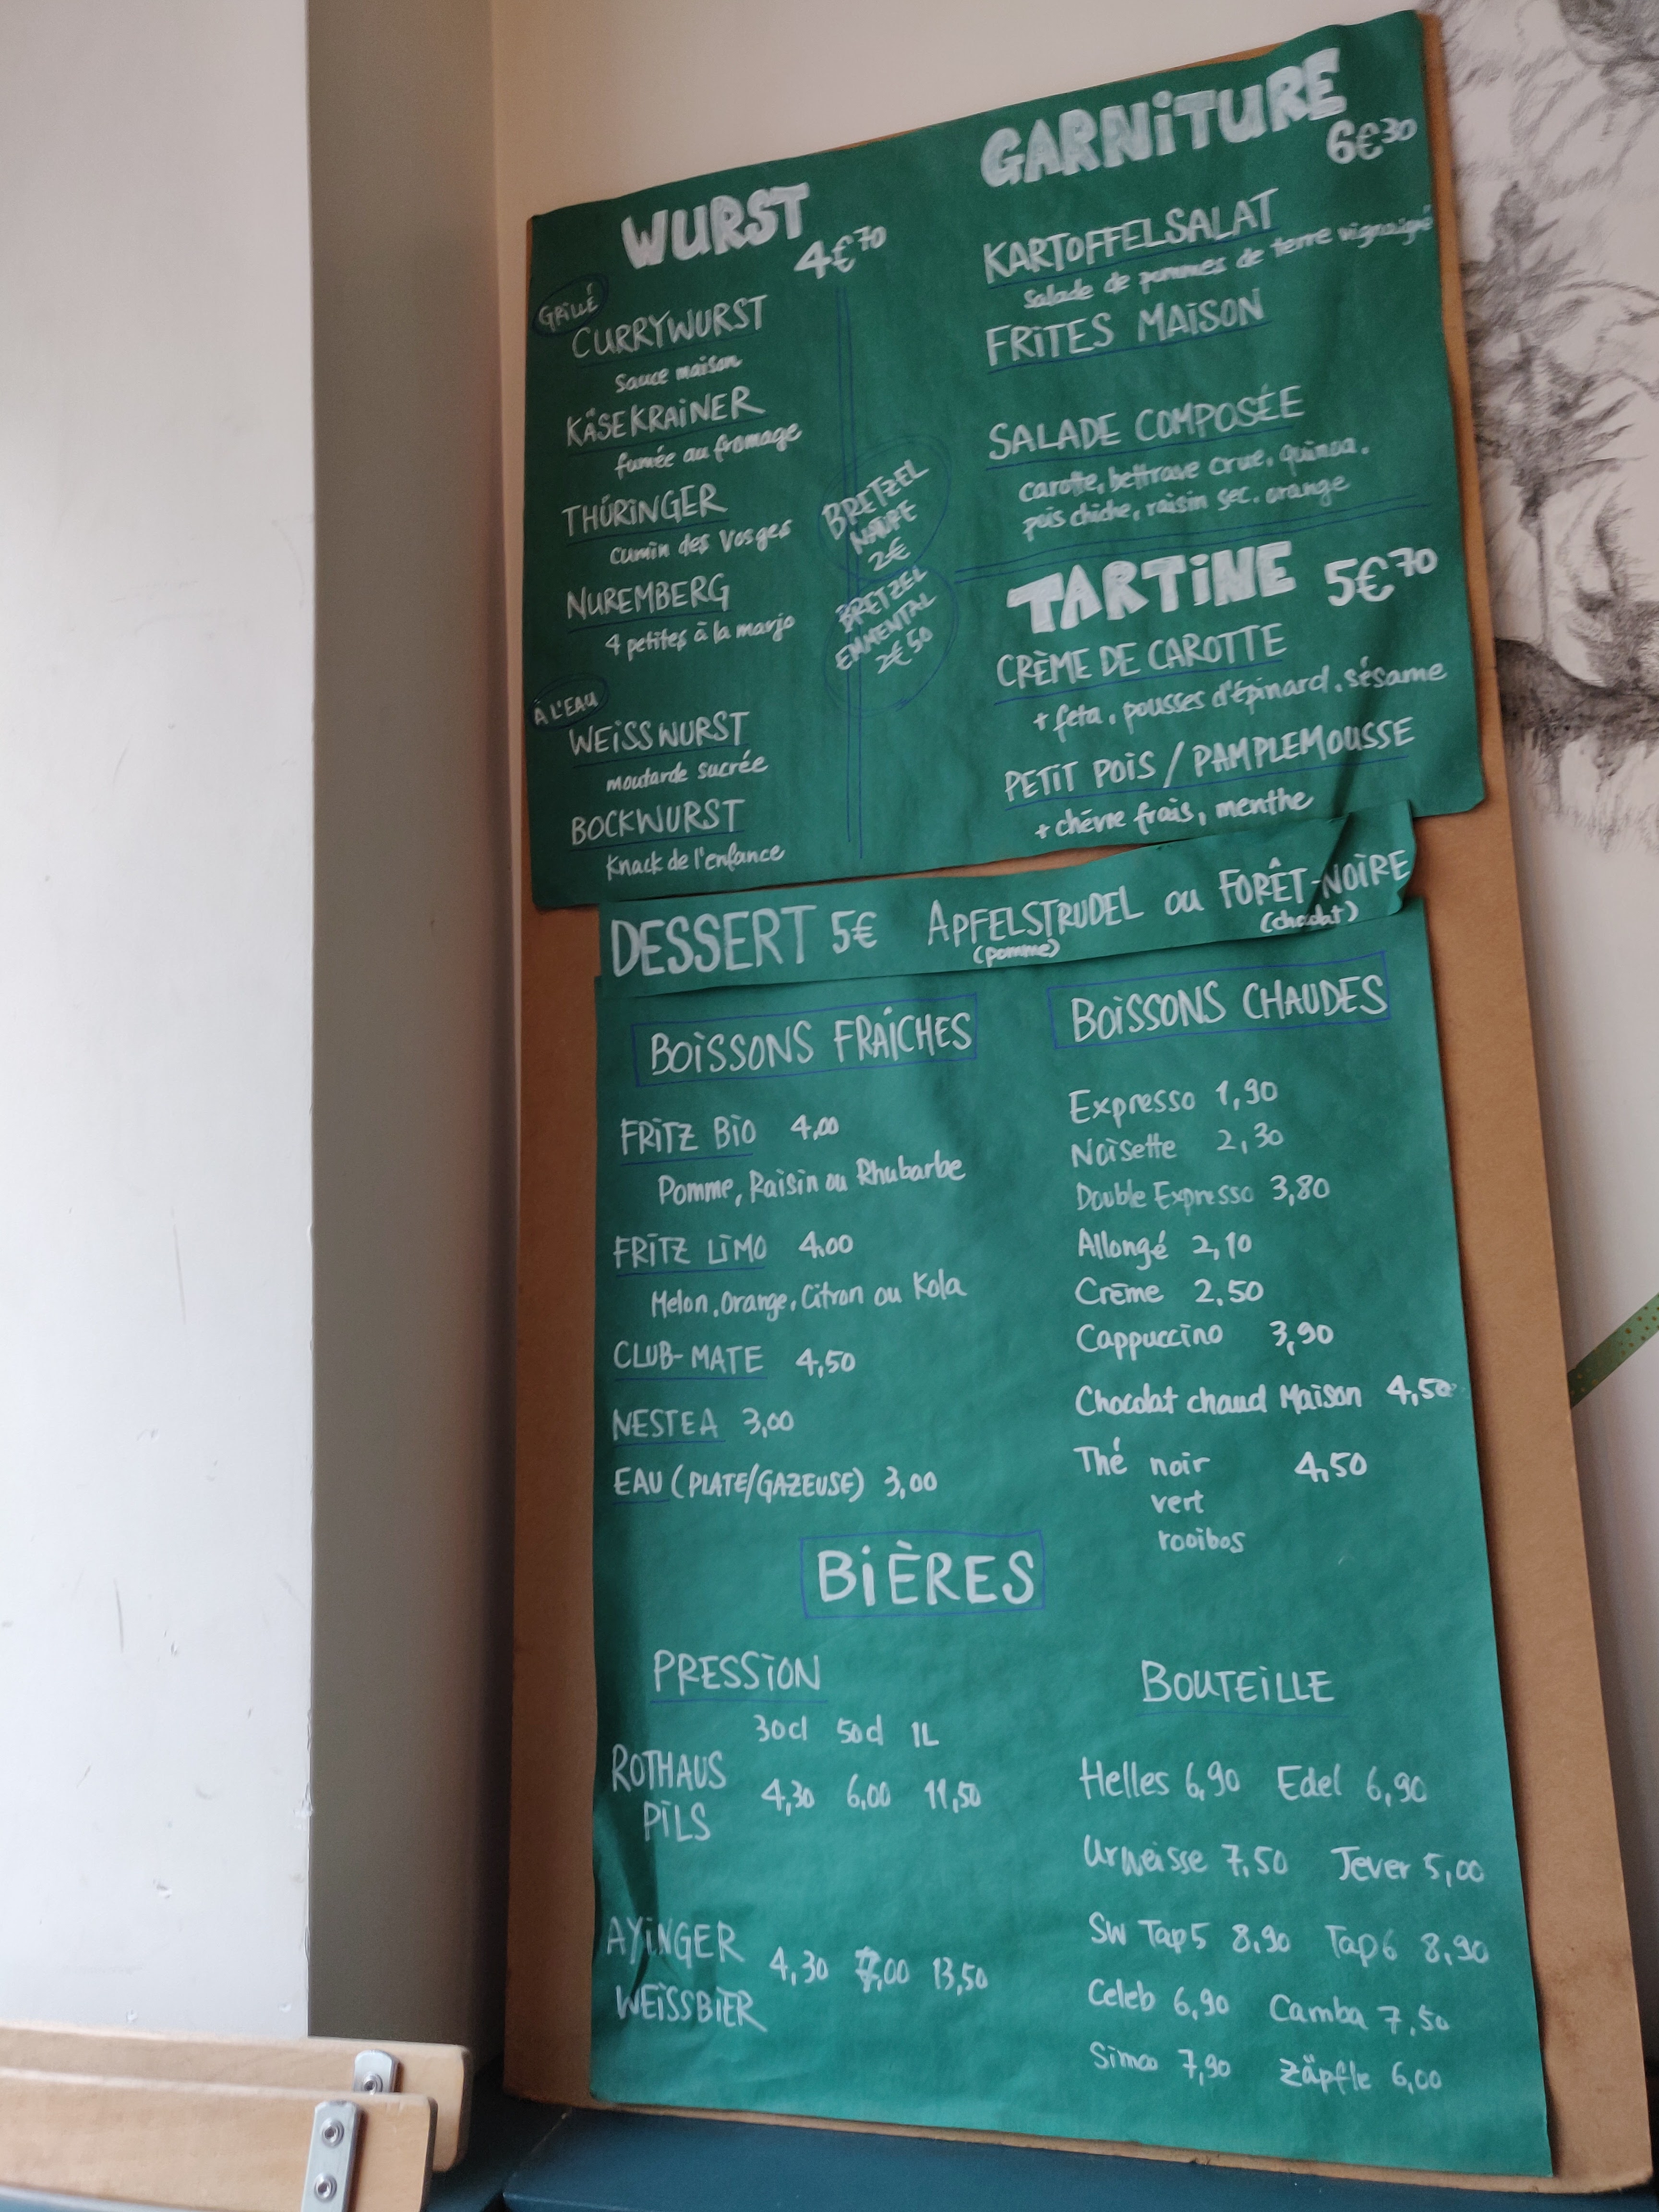 WURST
4€70
GRILLÉ
CURRYWURST
Sauce maison
KÄSEKRAINER
fumée au fromage
THÜRINGER
Cumin des Vosges
NUREMBERG
4 petites à la marjo
À L'EAU
WEISSWURST
moutarde sucrée
BOCKWURST
Knack de l'enfance
BRETZEL
NATURE
2€
BRETZEL
EMMENTAL
2€50
GARNITURE
6€30
KARTOFFELSALAT
Salade de pommes de terre vignaigré
FRITES MAISON
SALADE COMPOSÉE
carotte, bettrave crue, quinoa,
pois chiche, raisin sec, orange
TARTINE 5€70
CRÈME DE CAROTTE
+ feta, pousses d'épinard, sésame
PETIT POIS / PAMPLEMOUSSE
+ chèvre frais, menthe
DESSERT 5€ APFELSTRUDEL ou FORÊT-NOIRE
(pomme) (chocolat)
BOISSONS FRAÎCHES
FRITZ BIO 4,00
Pomme, Raisin ou Rhubarbe
FRITZ LIMO 4,00
Melon, Orange, Citron ou Kola
CLUB-MATE 4,50
NESTEA 3,00
EAU (PLATE/GAZEUSE) 3,00
BOISSONS CHAUDES
Expresso 1,90
Noisette 2,30
Double Expresso 3,80
Allongé 2,10
Crème 2,50
Cappuccino 3,90
Chocolat chaud Maison 4,50
Thé noir 4,50
vert
rooibos
BIÈRES
PRESSION
30cl 50cl 1L
ROTHAUS
PILS 4,30 6,00 11,50
AYINGER
WEISSBIER 4,30 7,00 13,50
BOUTEILLE
Helles 6,90 Edel 6,90
Urweisse 7,50 Jever 5,00
SW Tap5 8,90 Tap6 8,90
Celeb 6,90 Camba 7,50
7,90 Zäpfle 6,00